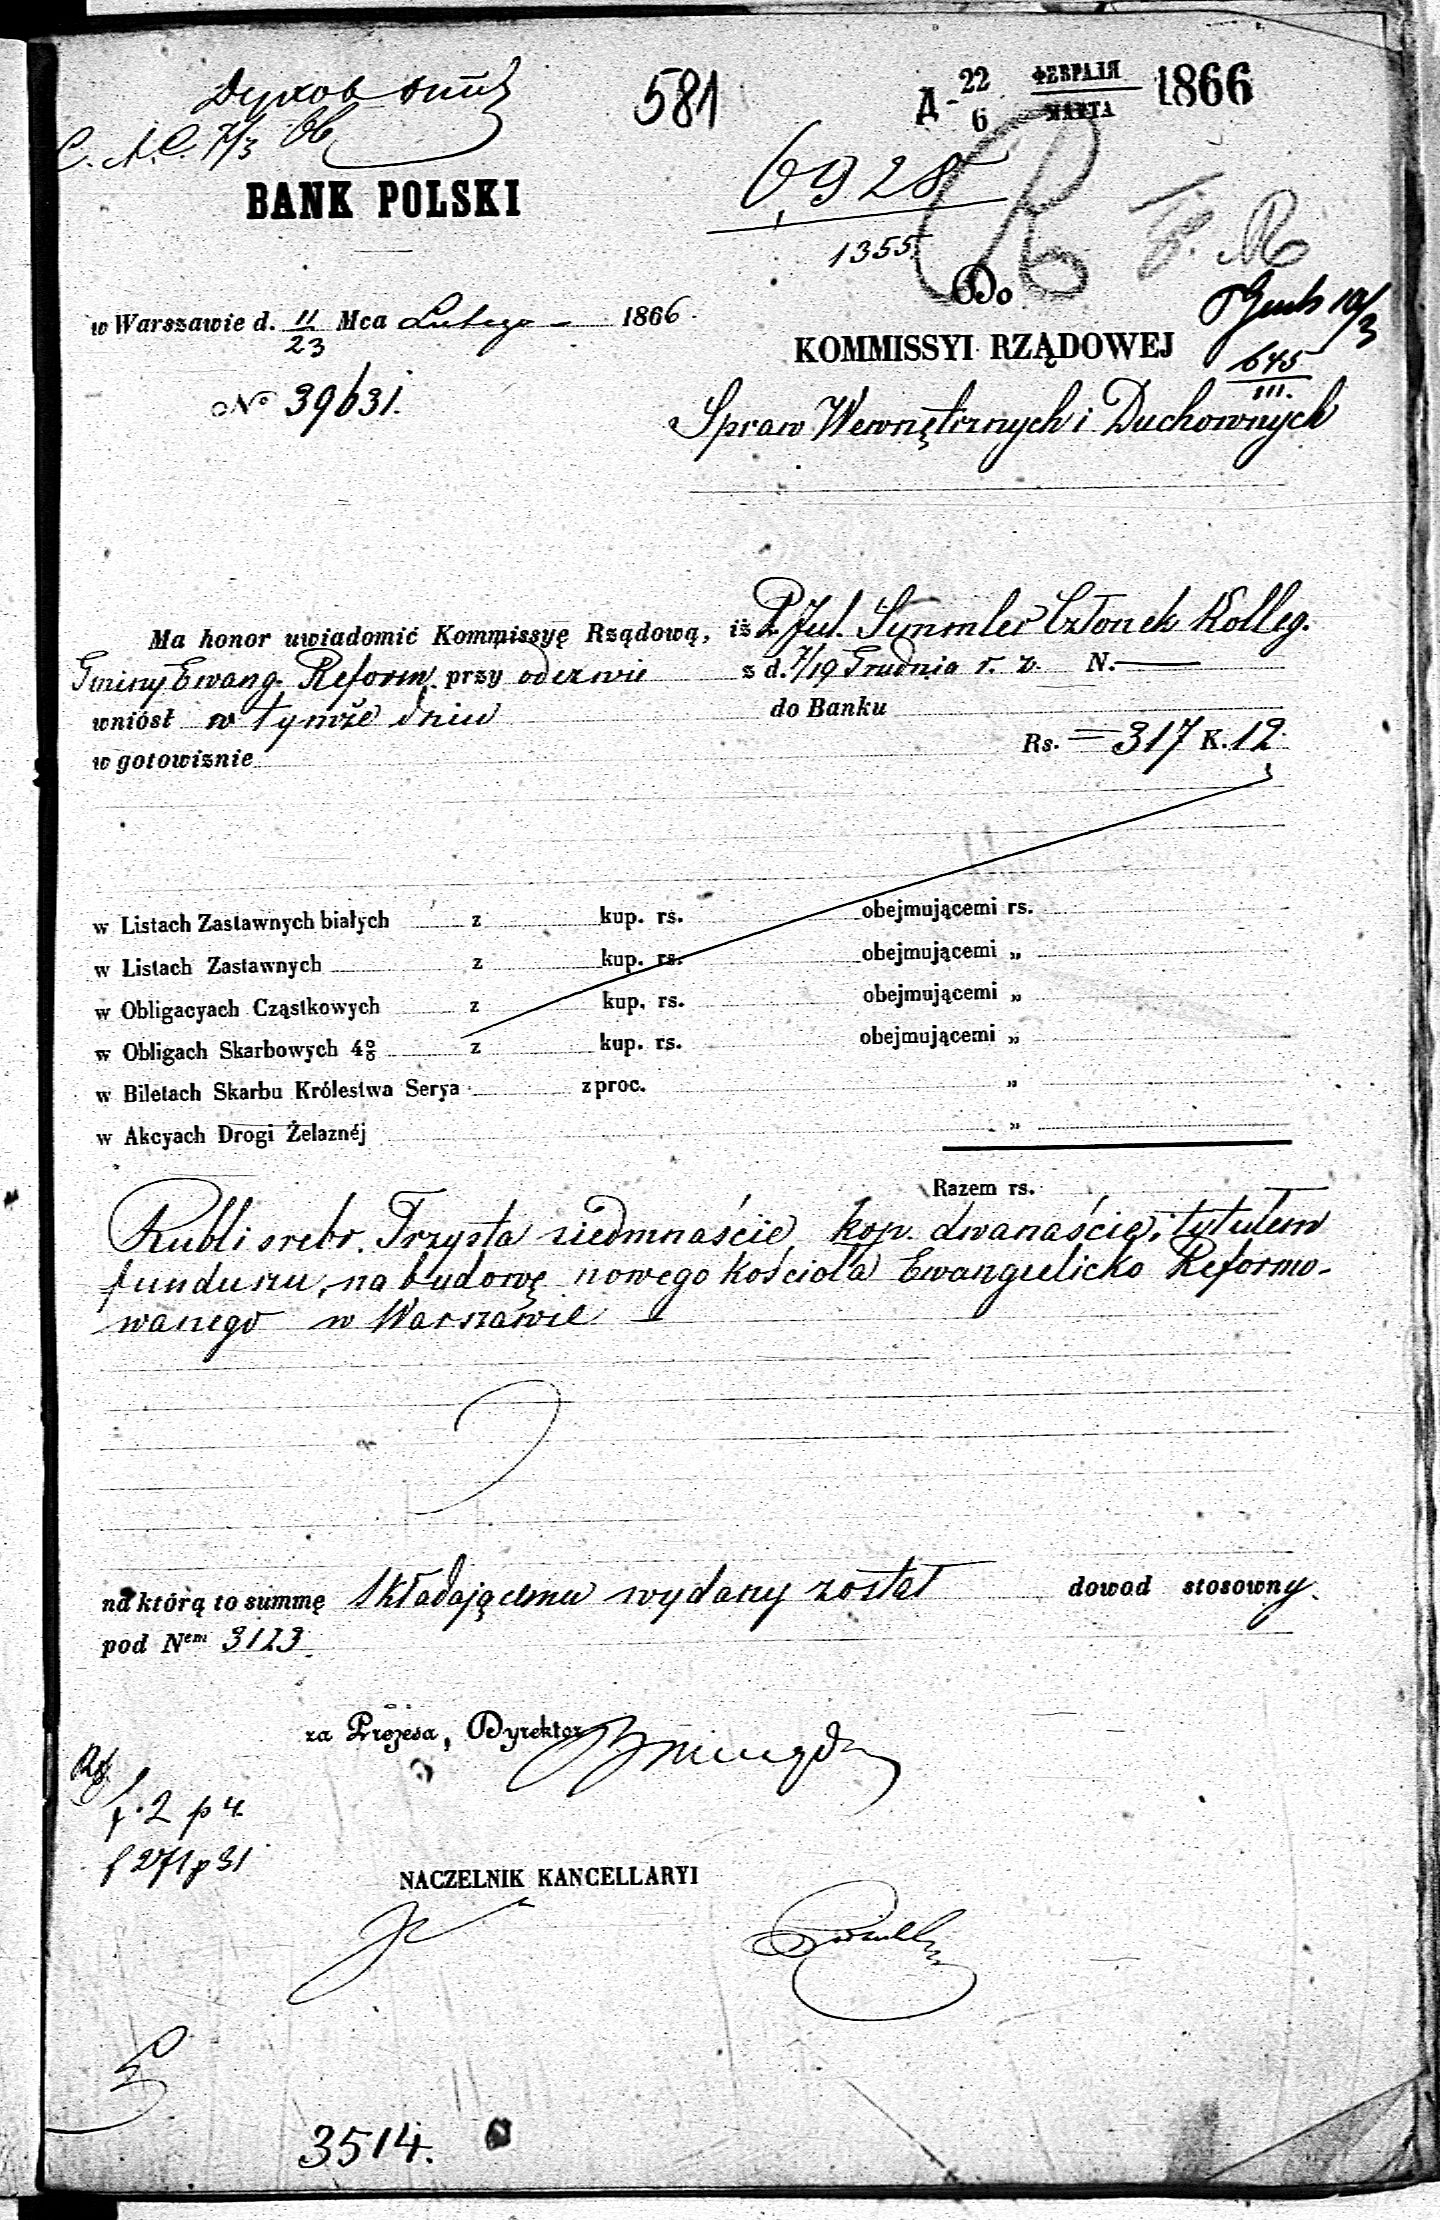 581
Д - 22/6 ФЕВРАЛЯ/МАРТА 1866
C. A. C. 7/3 66
BANK POLSKI
6928
1355.
R
Do
w Warszawie d. 11/23 Mca Lutego 1866.
10/3
KOMMISSYI RZĄDOWEJ
645/III.
No 39631.
Spraw Wewnętrznych i Duchownych
Ma honor uwiadomić Kommissyę Rządową, iż P. Jul. Simmler Członek Kolleg.
Gminy Ewang. Reform. przy odezwie z d. 7/19 Grudnia r. z. N. —
wniósł w tymże dniu do Banku
w gotowiznie Rs. = 317 K. 12
w Listach Zastawnych białych z kup. rs. obejmującemi rs.
w Listach Zastawnych z kup. rs. obejmującemi „
w Obligacyach Cząstkowych z kup. rs. obejmującemi „
w Obligach Skarbowych 4% z kup. rs. obejmującemi „
w Biletach Skarbu Królestwa Serya z proc. „
w Akcyach Drogi Żelaznéj „
Razem rs.
Rubli srebr. Trzysta siedmnaście, kop. dwanaście, tytułem
funduszu, na budowę nowego kościoła Ewangielicko Reformo-
wanego w Warszawie
na którą to summę składającemu wydany został dowod stosowny.
pod Nem 3123.
za Prezesa, Dyrektor
f. 2 p 4
f 271 p 31
NACZELNIK KANCELLARYI
3514.